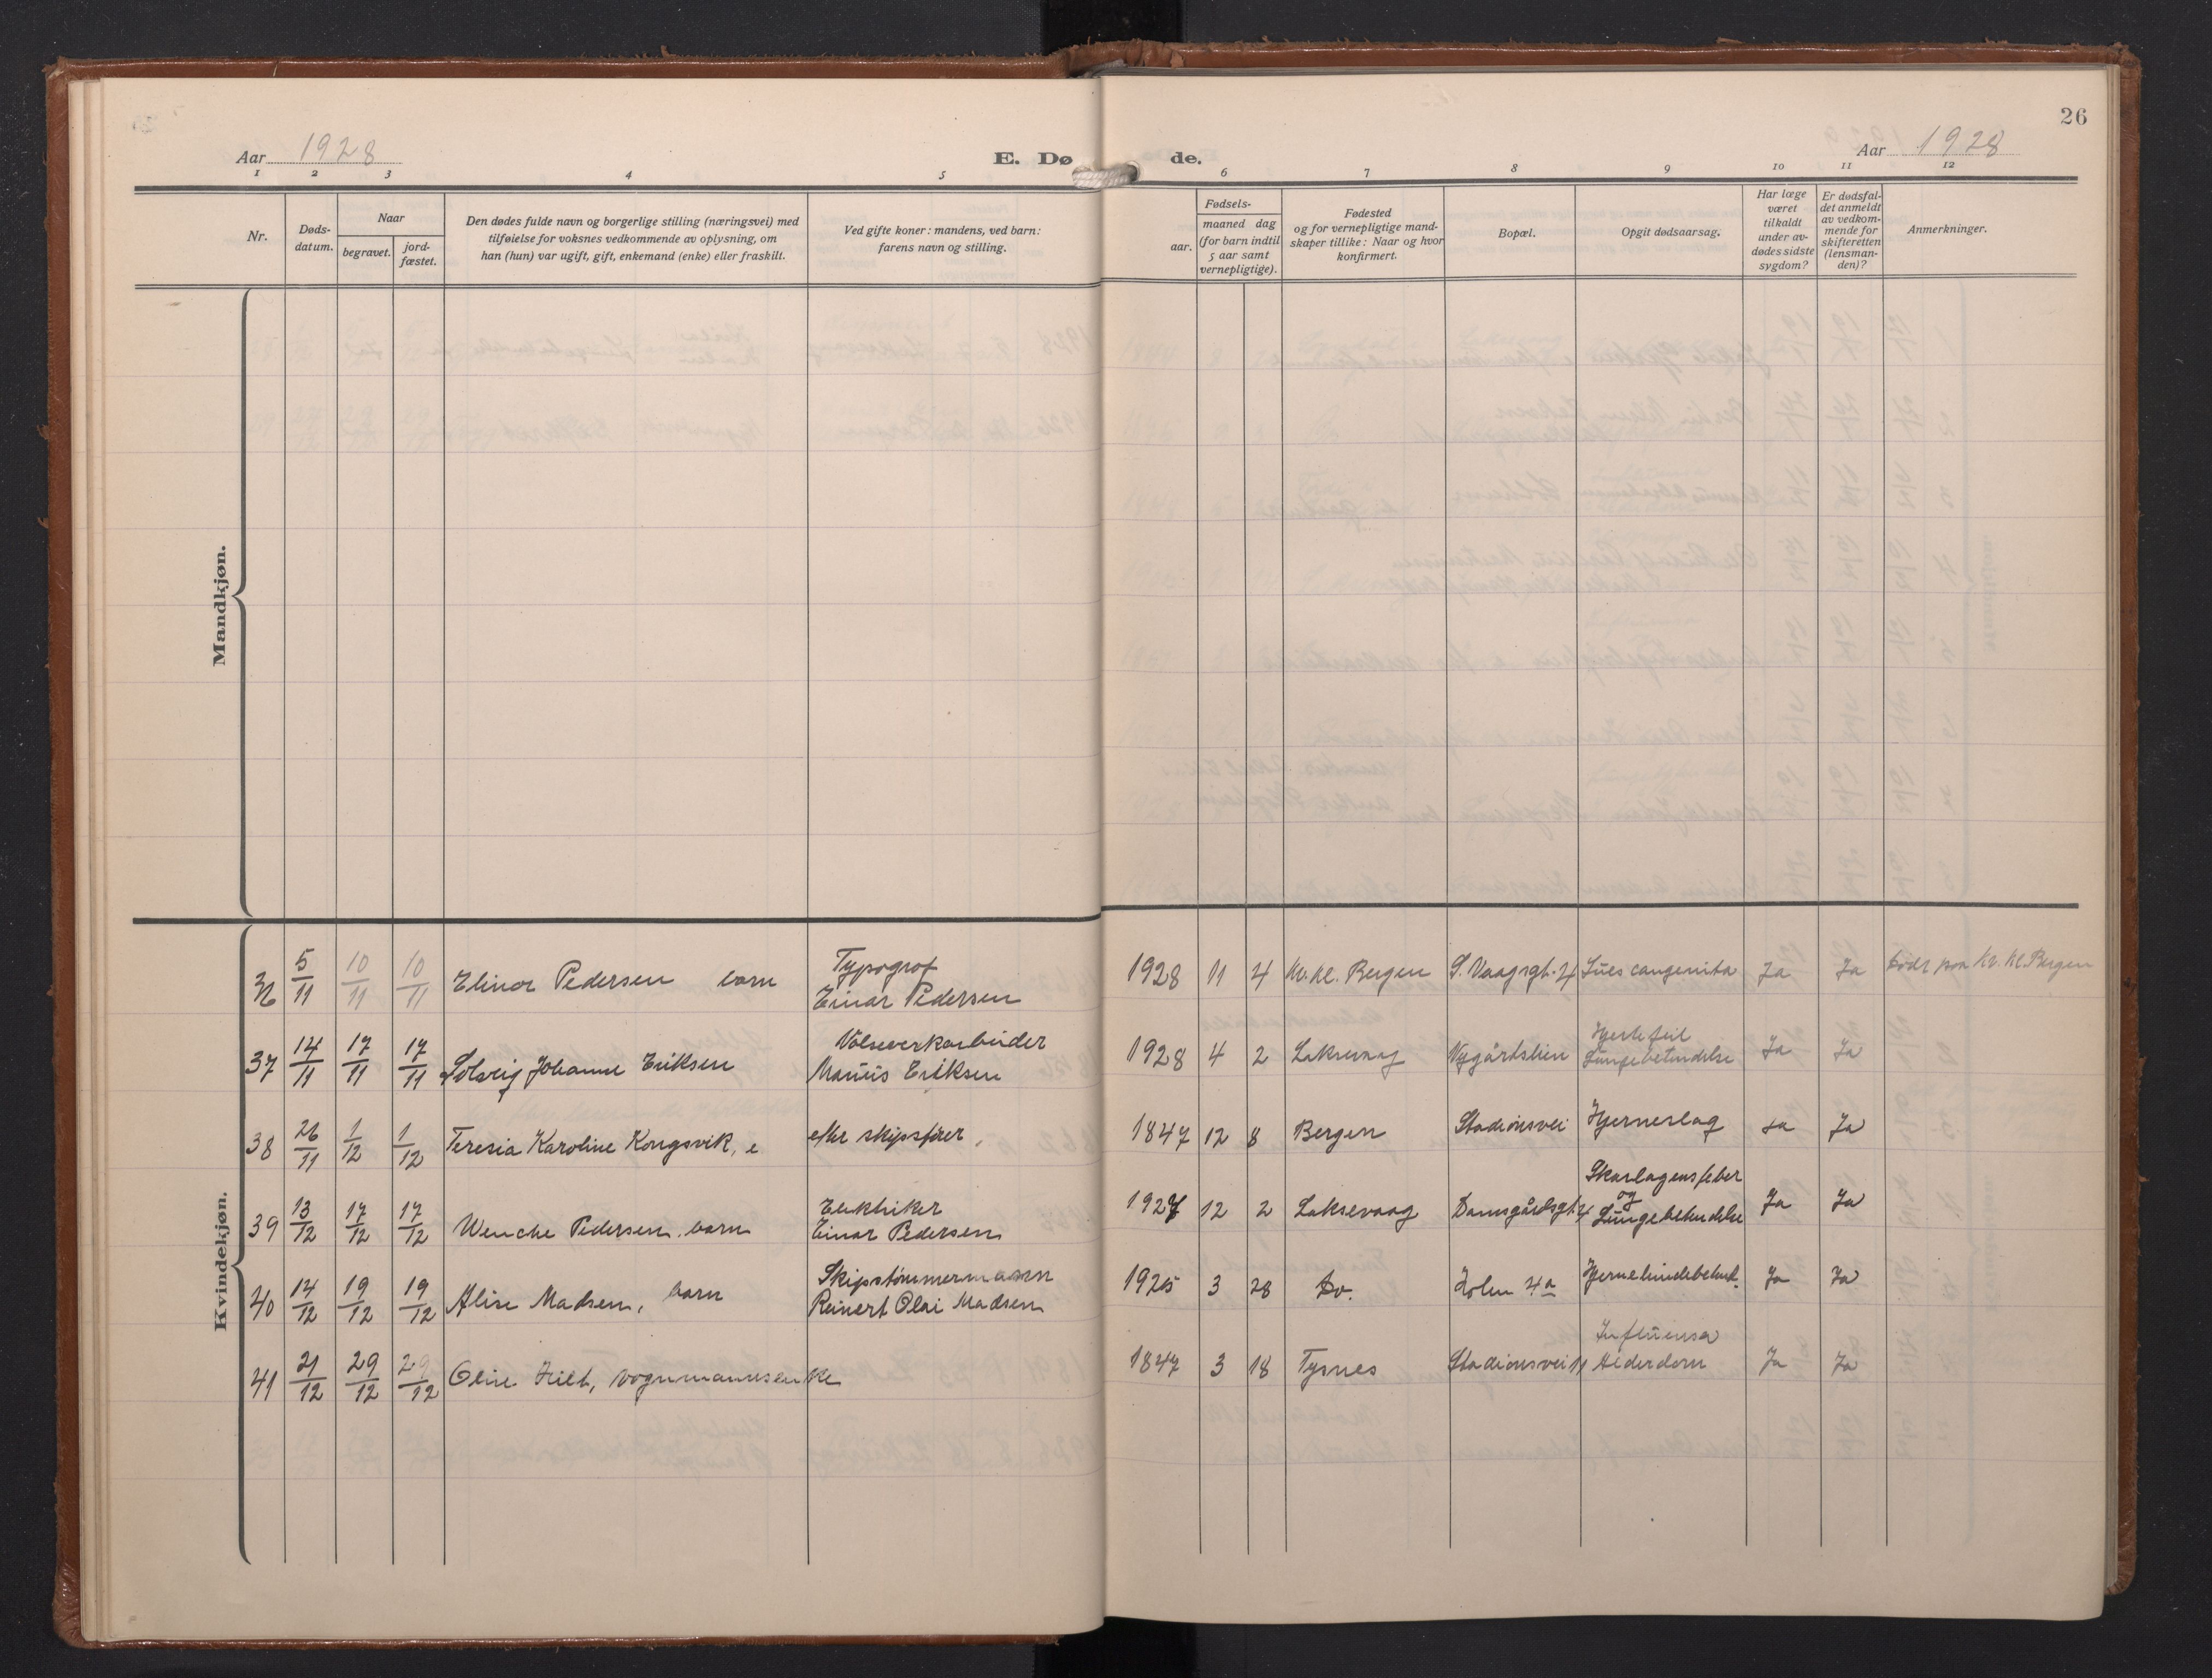 26
Aar 1928
E. Dø de.
Aar 1928
1 2 3 4 5 6 7 8 9 10 11 12
Nr.
Døds-
datum.
Naar
begravet.
jord-
fæstet.
Den dødes fulde navn og borgerlige stilling (næringsvei) med
tilføielse for voksnes vedkommende av oplysning, om
han (hun) var ugift, gift, enkemand (enke) eller fraskilt.
Ved gifte koner: mandens, ved barn:
farens navn og stilling.
Fødsels-
aar.
maaned dag
(for barn indtil
5 aar samt
vernepligtige).
Fødested
og for vernepligtige mand-
skaper tillike: Naar og hvor
konfirmert.
Bopæl.
Opgit dødsaarsag.
Har læge
været
tilkaldt
under av-
dødes sidste
sygdom?
Er dødsfal-
det anmeldt
av vedkom-
mende for
skifteretten
(lensman-
den)?
Anmerkninger.
Mandkjøn.
Kvindekjøn.
36 5/11 10/11 10/11 Elinor Pedersen barn Typograf
Einar Pedersen
1928 11 4 Kv. Kl. Bergen S. Vaagsgt. 4 Lues congenita Ja Ja Født paa Kv. Kl. Bergen
37 14/11 17/11 17/11 Solveig Johanne Eriksen Valseverkarbeider
Marius Eriksen
1928 4 2 Laksevaag Nygårdslien Hjertefeil
Lungebetændelse Ja Ja
38 26/11 1/12 1/12 Teresia Karoline Kongsvik, e efter skipsfører,
1847 12 8 Bergen Stadionsvei Hjerneslag Ja Ja
39 13/12 17/12 17/12 Wenche Pedersen, barn Elektriker
Einar Pedersen
1927 12 2 Laksevaag Damsgårdsgt 4 Skarlagensfeber
og
Lungebetendelse Ja Ja
40 14/12 19/12 19/12 Alise Madsen, barn Skipstømmermann
Reinert Olai Madsen
1925 3 28 Do. Holen 4a Hjernehindebetend. Ja Ja
41 21/12 29/12 29/12 Oline Hilt, vognmannsenke
1847 3 18 Tysnes Stadionsvei 11 Influensa
Alderdom Ja Ja